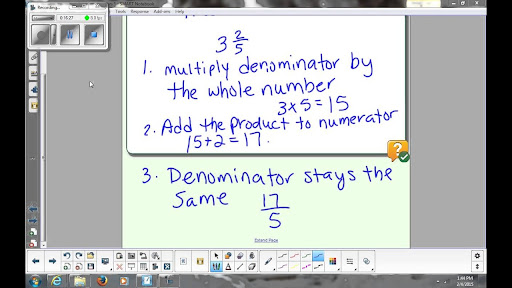 Recording...
SMART Notebook
0:15:27
Tools Response Add-ons Window Help
3 2/5
1. multiply denominator by
the whole number
3 x 5 = 15
2. Add the product to numerator
15 + 2 = 17.
?
3. Denominator stays the
same 17/5
Extend Page
1:44 PM
2/4/2015